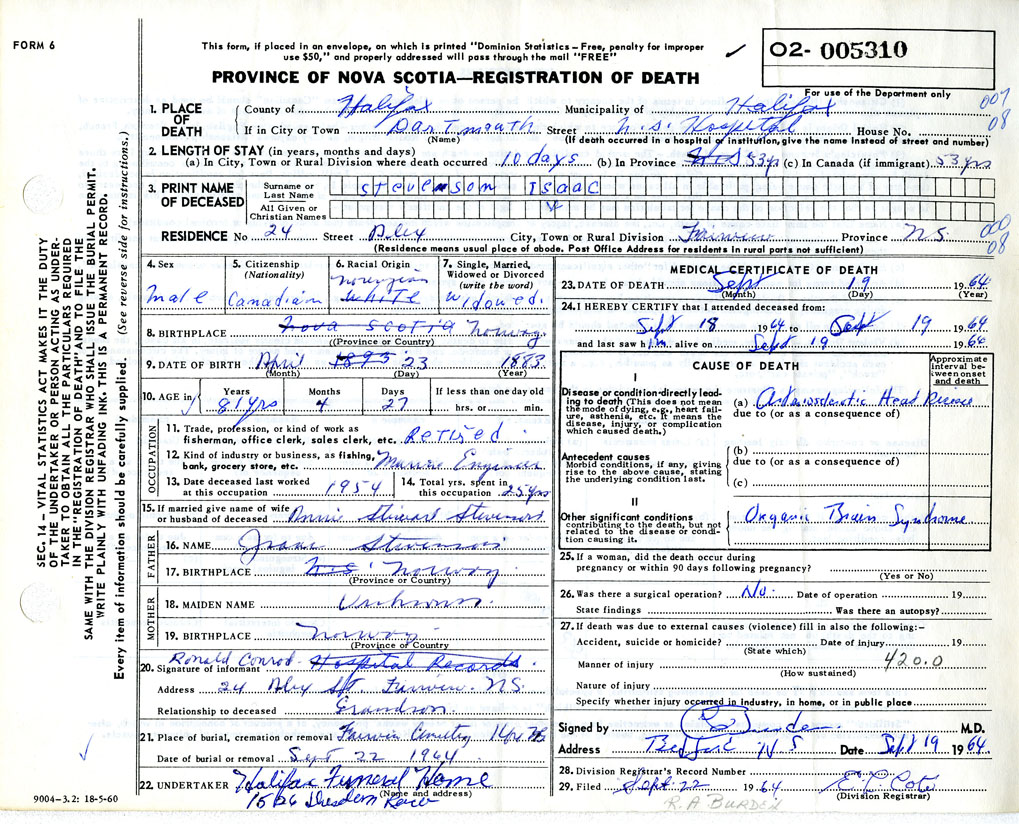 FORM 6
This form, if placed in an envelope, on which is printed "Dominion Statistics – Free, penalty for improper
use $50," and properly addressed will pass through the mail "FREE"
✓
O2- 005310
PROVINCE OF NOVA SCOTIA—REGISTRATION OF DEATH
For use of the Department only
007
08
1. PLACE OF DEATH
County of Halifax Municipality of Halifax
If in City or Town Dartmouth Street N.S. Hospital House No.
(Name) (If death occurred in a hospital or institution, give the name instead of street and number)
2. LENGTH OF STAY (in years, months and days)
(a) In City, Town or Rural Division where death occurred 10 days (b) In Province 53 yr (c) In Canada (if immigrant) 53 yrs
3. PRINT NAME OF DECEASED
Surname or Last Name Stevenson Isaac
All Given or Christian Names
RESIDENCE No 24 Street Alex City, Town or Rural Division Fairview Province N.S.
000
08
(Residence means usual place of abode. Post Office Address for residents in rural parts not sufficient)
4. Sex
male
5. Citizenship
(Nationality)
Canadian
6. Racial Origin
Norwegian
White
7. Single, Married, Widowed or Divorced
(write the word)
Widowed.
8. BIRTHPLACE Nova Scotia Norway
(Province or Country)
9. DATE OF BIRTH April 1893 23 1883
(Month) (Day) (Year)
10. AGE in
Years Months Days If less than one day old
81 yrs 4 27 hrs. or min.
OCCUPATION
11. Trade, profession, or kind of work as
fisherman, office clerk, sales clerk, etc. Retired
12. Kind of industry or business, as fishing,
bank, grocery store, etc. Marine Engineer
13. Date deceased last worked at this occupation 1954
14. Total yrs. spent in this occupation 25 yrs
15. If married give name of wife
or husband of deceased Annie Stewart Stevenson
FATHER
16. NAME Stevenson
17. BIRTHPLACE N.S. Norway
(Province or Country)
MOTHER
18. MAIDEN NAME Unknown
19. BIRTHPLACE Norway
(Province or Country)
Ronald Conrod Hospital Records
20. Signature of informant
Address 24 Alex St. Fairview N.S.
Relationship to deceased Grandson
21. Place of burial, cremation or removal Fairview Cemetery
Date of burial or removal Sept 22 1964
22. UNDERTAKER Halifax Funeral Home
(Name and address)
1526 Dresden Row
9004-3.2: 18-5-60
MEDICAL CERTIFICATE OF DEATH
23. DATE OF DEATH Sept 19 1964
(Month) (Day) (Year)
24. I HEREBY CERTIFY that I attended deceased from:
Sept 18 1964 to Sept 19 1964
and last saw him alive on Sept 19 1964
CAUSE OF DEATH
Approximate interval between onset and death
I
Disease or condition directly leading to death (This does not mean the mode of dying, e.g., heart failure, asthenia, etc. It means the disease, injury, or complication which caused death.)
(a) Arteriosclerotic Heart Disease
due to (or as a consequence of)
Antecedent causes
Morbid conditions, if any, giving rise to the above cause, stating the underlying condition last.
(b)
due to (or as a consequence of)
(c)
II
Other significant conditions
contributing to the death, but not related to the disease or condition causing it.
Organic Brain Syndrome
25. If a woman, did the death occur during
pregnancy or within 90 days following pregnancy?
(Yes or No)
26. Was there a surgical operation? No. Date of operation 19
State findings Was there an autopsy?
27. If death was due to external causes (violence) fill in also the following:–
Accident, suicide or homicide? Date of injury 19
(State which)
Manner of injury 420.0
(How sustained)
Nature of injury
Specify whether injury occurred in industry, in home, or in public place
Signed by M.D.
Address Bedford N S Date Sept 19 1964
28. Division Registrar's Record Number
29. Filed Sept. 22 1964
(Division Registrar)
R. A BURDEN
SEC. 14 – VITAL STATISTICS ACT MAKES IT THE DUTY
OF THE UNDERTAKER OR PERSON ACTING AS UNDER-
TAKER TO OBTAIN ALL THE PARTICULARS REQUIRED
IN THE "REGISTRATION OF DEATH" AND TO FILE THE
SAME WITH THE DIVISION REGISTRAR WHO SHALL ISSUE THE BURIAL PERMIT.
WRITE PLAINLY WITH UNFADING INK. THIS IS A PERMANENT RECORD.
Every item of information should be carefully supplied. (See reverse side for instructions.)